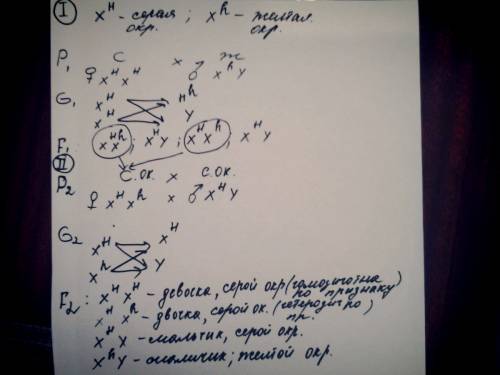 I X^H - серая окр. ; X^h - желтая окр.
P₁ С x ж
♀ X^H X^H x ♂ X^h Y
G₁ X^H X^h
X^H Y
F₁ X^H X^h ; X^H Y ; X^H X^h ; X^H Y
II С.ок. x С.ок.
P₂ ♀ X^H X^h x ♂ X^H Y
G₂ X^H X^H
X^h Y
F₂ : X^H X^H - девочка, серой окр (гомозиготна по признаку)
X^H X^h - двочка, серой ок. (гетерозиг по пр.)
X^H Y - мальчик, серой окр.
X^h Y - мальчик; желтой окр.